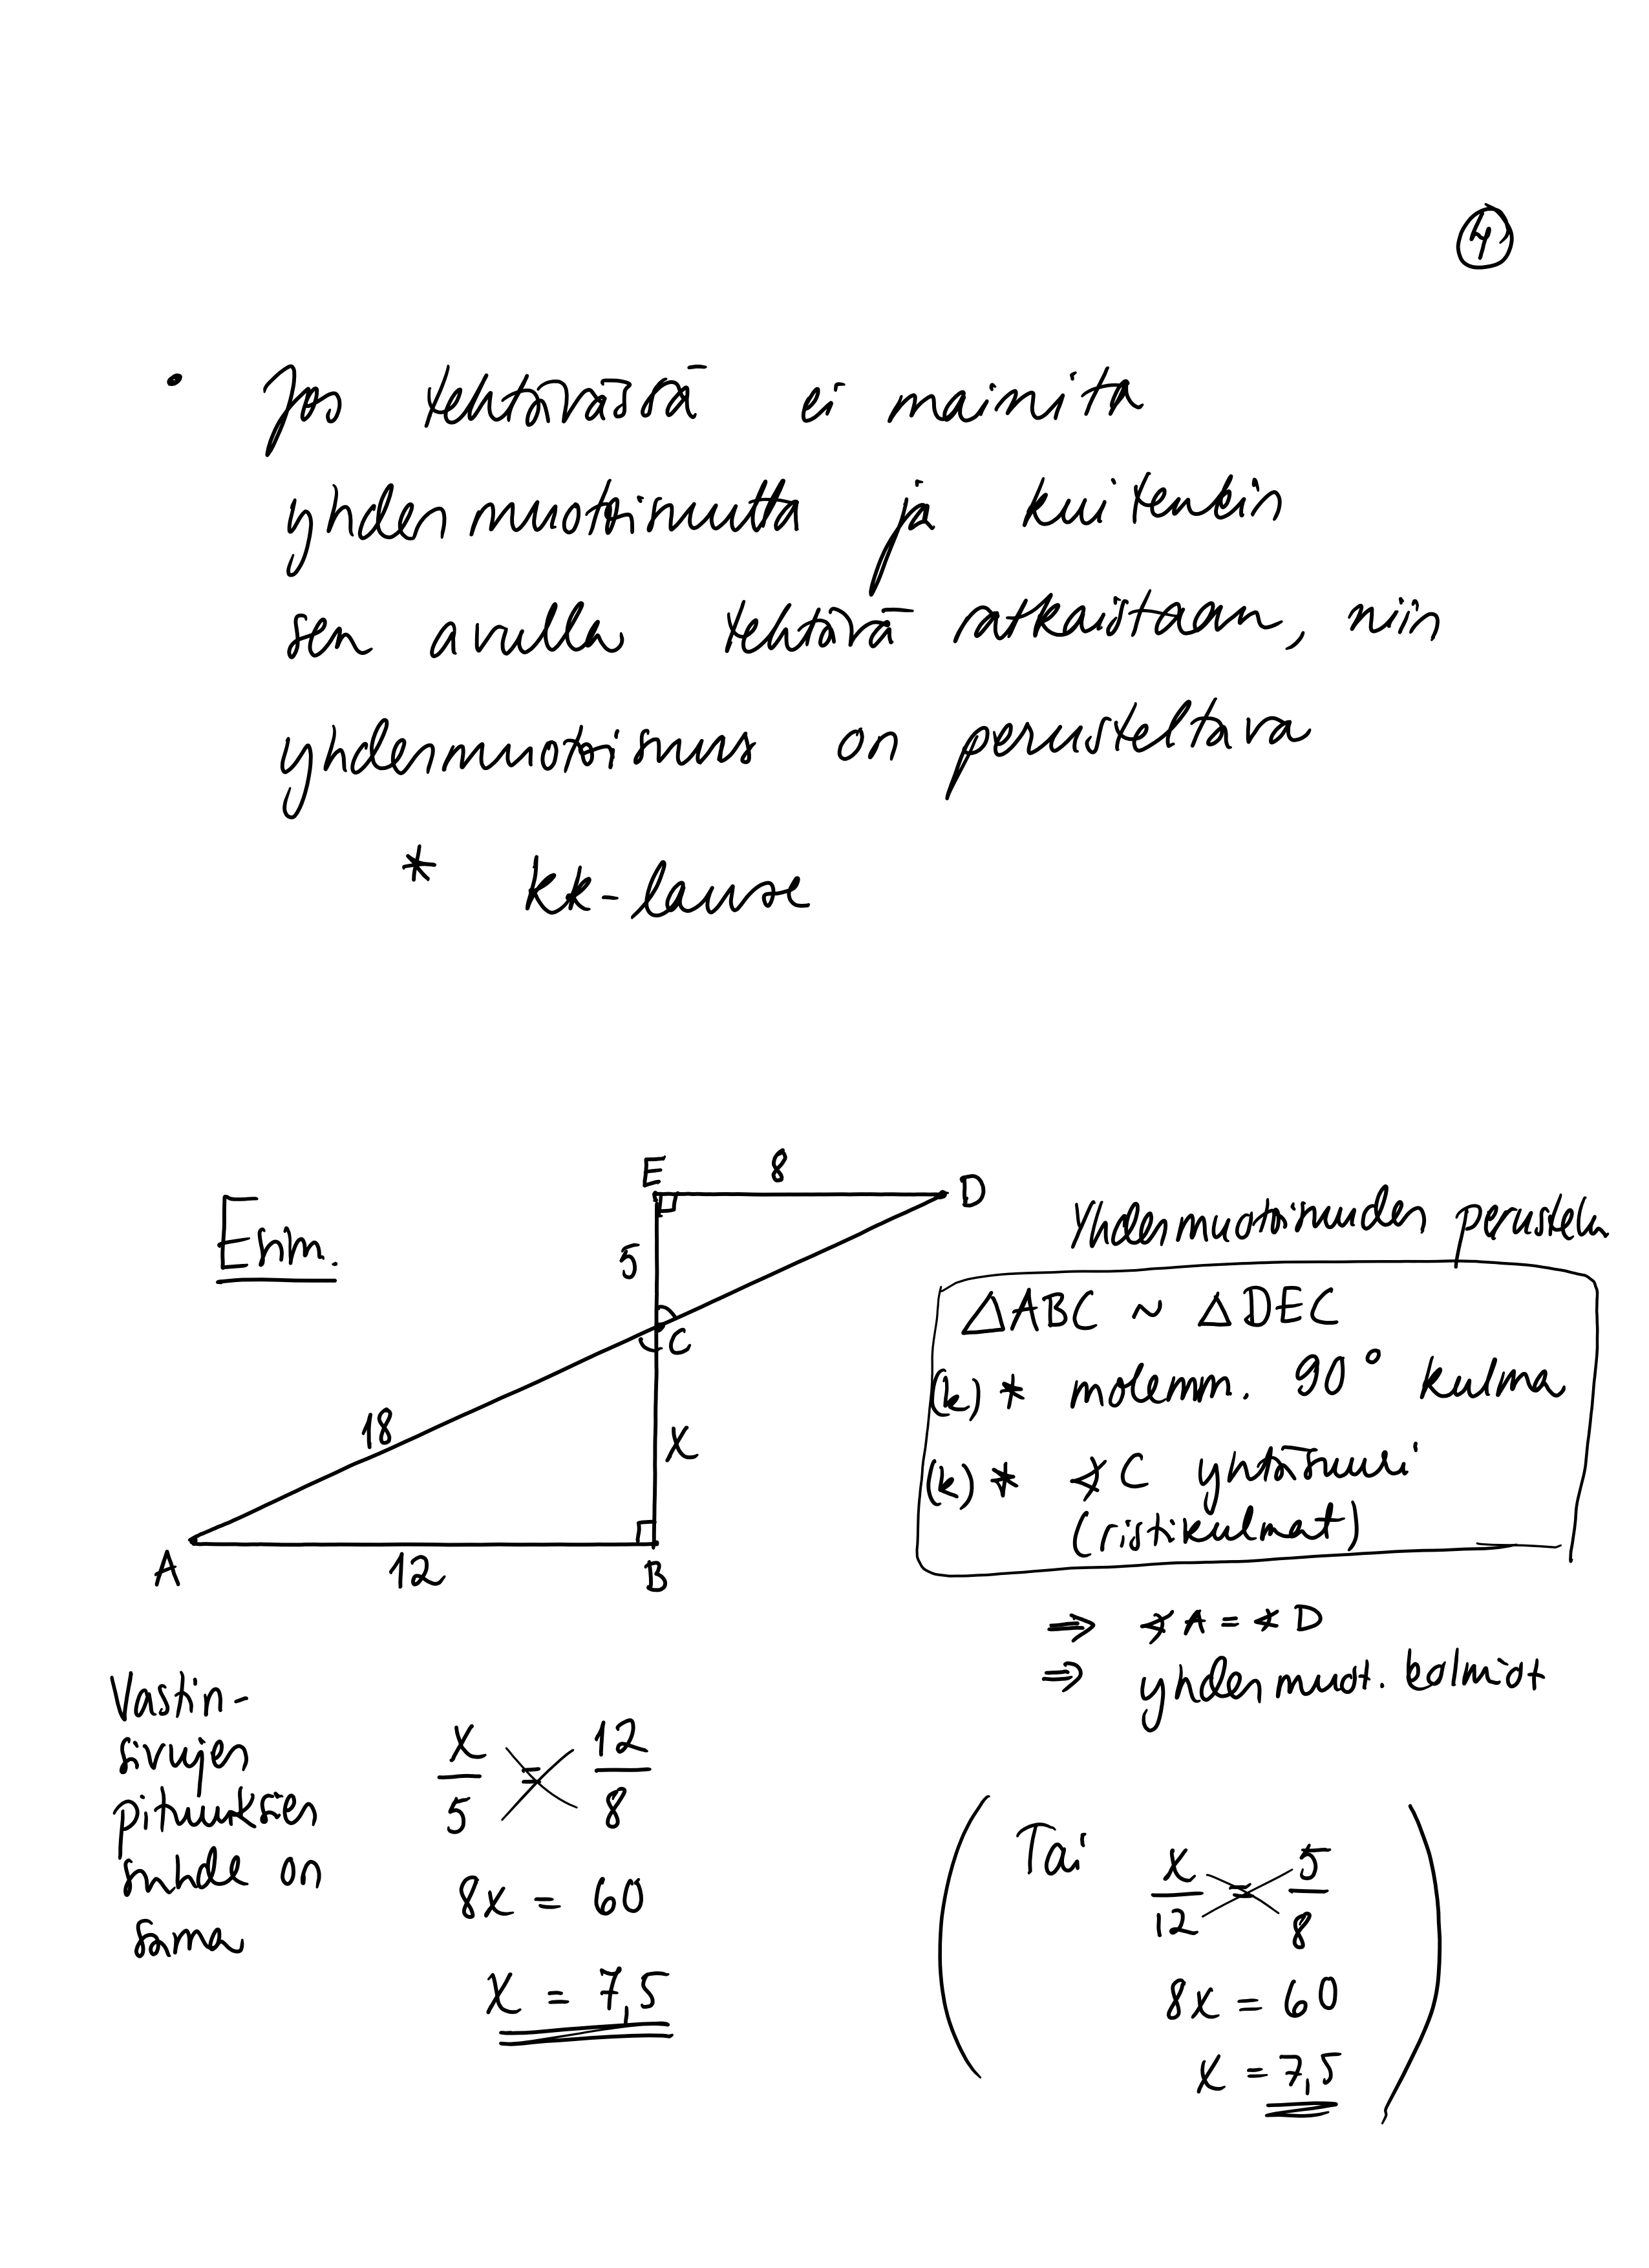 4
• Jos tehtävässä ei mainita
yhdenmuotoisuutta ja kuitenkin
sen avulla tehtävä ratkaistaan, niin
yhdenmuotoisuus on perusteltava
* kk-lause
Esim.
E 8 D
5
C
18
x
A 12 B
Yhdenmuotoisuuden perustelu
△ABC ~ △DEC
(k) * molemm. 90° kulma
(k) * ∢C yhtäsuuri
(ristikulmat)
⇒ ∢A = ∢D
⇒ yhdenmuot. kolmiot
Vastin-
sivujen
pituuksien
suhde on
sama
x/5 = 12/8
8x = 60
x = 7,5
( Tai x/12 = 5/8 )
8x = 60
x = 7,5